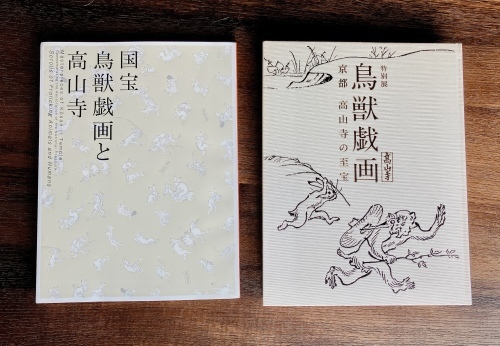 国宝
鳥獣戯画と
高山寺
Masterpieces of Kosan-ji Temple
Scrolls of Frolicking Animals and Humans
特別展
鳥獣戯画
京都 高山寺の至宝
高山寺